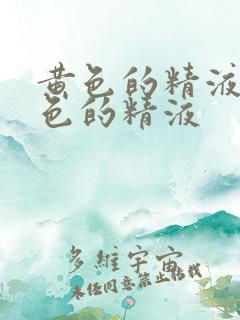 黄色的精液
色的精液
多維宇宙
未任同意禁止转载